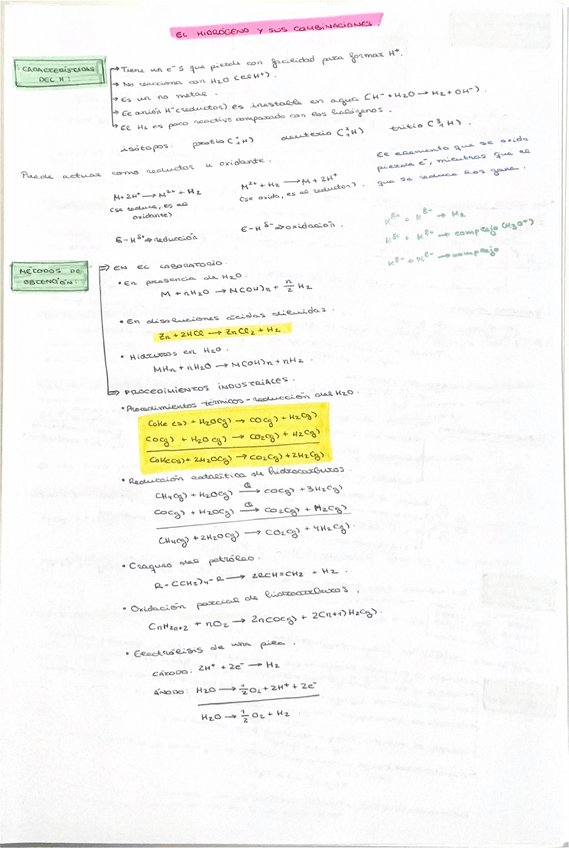 EL HIDRÓGENO Y SUS COMBINACIONES.
CARACTERÍSTICAS DEL H:
→ Tiene un e⁻ s que pierde con facilidad para formar H⁺.
→ No reacciona con H₂O (el H⁺).
→ Es un no metal.
→ El anión H⁻ (reductor) es inestable en agua (H⁻ + H₂O → H₂ + OH⁻).
→ El H₂ es poco reactivo comparado con los halógenos.
isótopos: protio (¹₁H) deuterio (²₁H) tritio (³₁H).
Puede actuar como reductor u oxidante.
El elemento que se oxida
pierde e⁻, mientras que el
que se reduce los gana.
M + 2H⁺ → M²⁺ + H₂
(se reduce, es el
oxidante)
M²⁺ + H₂ → M + 2H⁺
(se oxida, es el reductor).
E-H ⇒ reducción
E-H ⇒ oxidación.
→ H₂
→ complejo (H₃O⁺)
→ complejo
MÉTODOS DE OBTENCIÓN:
⇒ EN EL LABORATORIO.
• En presencia de H₂O.
M + nH₂O → M(OH)n + n/2 H₂
• En disoluciones ácidas diluidas.
Zn + 2HCl → ZnCl₂ + H₂
• Hidruros en H₂O.
MHn + nH₂O → M(OH)n + nH₂.
⇒ PROCEDIMIENTOS INDUSTRIALES.
• Procedimientos térmicos - reducción del H₂O.
Coke (s) + H₂O(g) → CO(g) + H₂(g)
CO(g) + H₂O(g) → CO₂(g) + H₂(g)
Coke(s) + 2H₂O(g) → CO₂(g) + 2H₂(g)
• Reducción catalítica de hidrocarburos.
CH₄(g) + H₂O(g) → CO(g) + 3H₂(g)
CO(g) + H₂O(g) → CO₂(g) + H₂(g)
CH₄(g) + 2H₂O(g) → CO₂(g) + 4H₂(g).
• Craqueo del petróleo.
R-(CH₂)₄-R → 2RCH=CH₂ + H₂.
• Oxidación parcial de hidrocarburos.
CnH2n+2 + nO₂ → 2nCO(g) + 2(n+1)H₂(g).
• Electrólisis de una pila.
CÁTODO: 2H⁺ + 2e⁻ → H₂
ÁNODO: H₂O → ½O₂ + 2H⁺ + 2e⁻
H₂O → ½O₂ + H₂.